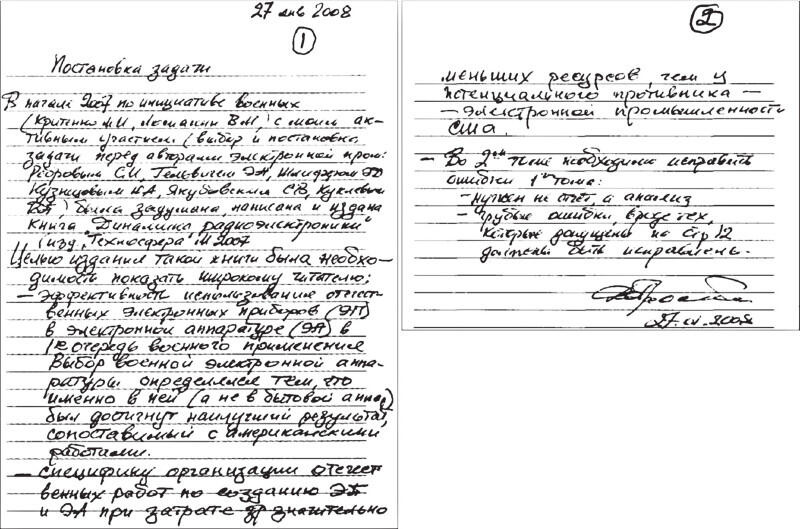 27 янв 2008
1
Постановка задачи
В начале 2007 по инициативе военных
(Критенко М.И., Ломакин В.М.) с моим ак-
тивным участием (выбор и постановка
задачи перед авторами электронной пром:
Ребровым С.И., Гелевичем ЭА,
Кузнецовым НА, Якубовским СВ,
была задумана, написана и издана
книга "Динамика радиоэлектроники"
(изд. "Техносфера" М 2007
Целью издания такой книги была необхо-
димость показать широкому читателю:
— Эффективность использования отечест-
венных электронных приборов (ЭП)
в электронной аппаратуре (ЭА) в
1ю очередь военного применения
Выбор военной электронной аппа-
ратуры определялся тем, что
именно в ней (а не в бытовой аппар)
был достигнут наилучший результат,
сопоставимый с американскими
работами.
— специфику организации отечест
венных работ по созданию ЭП
и ЭА при затрате значительно
2
меньших ресурсов, чем у
потенциального противника —
— электронной промышленности
США.
— Во 2ом томе необходимо исправить
ошибки 1го тома:
— нужен не отчёт, а анализ
— грубые ошибки, вроде тех,
которые допущены на стр 12
должны быть исправлены.
2008